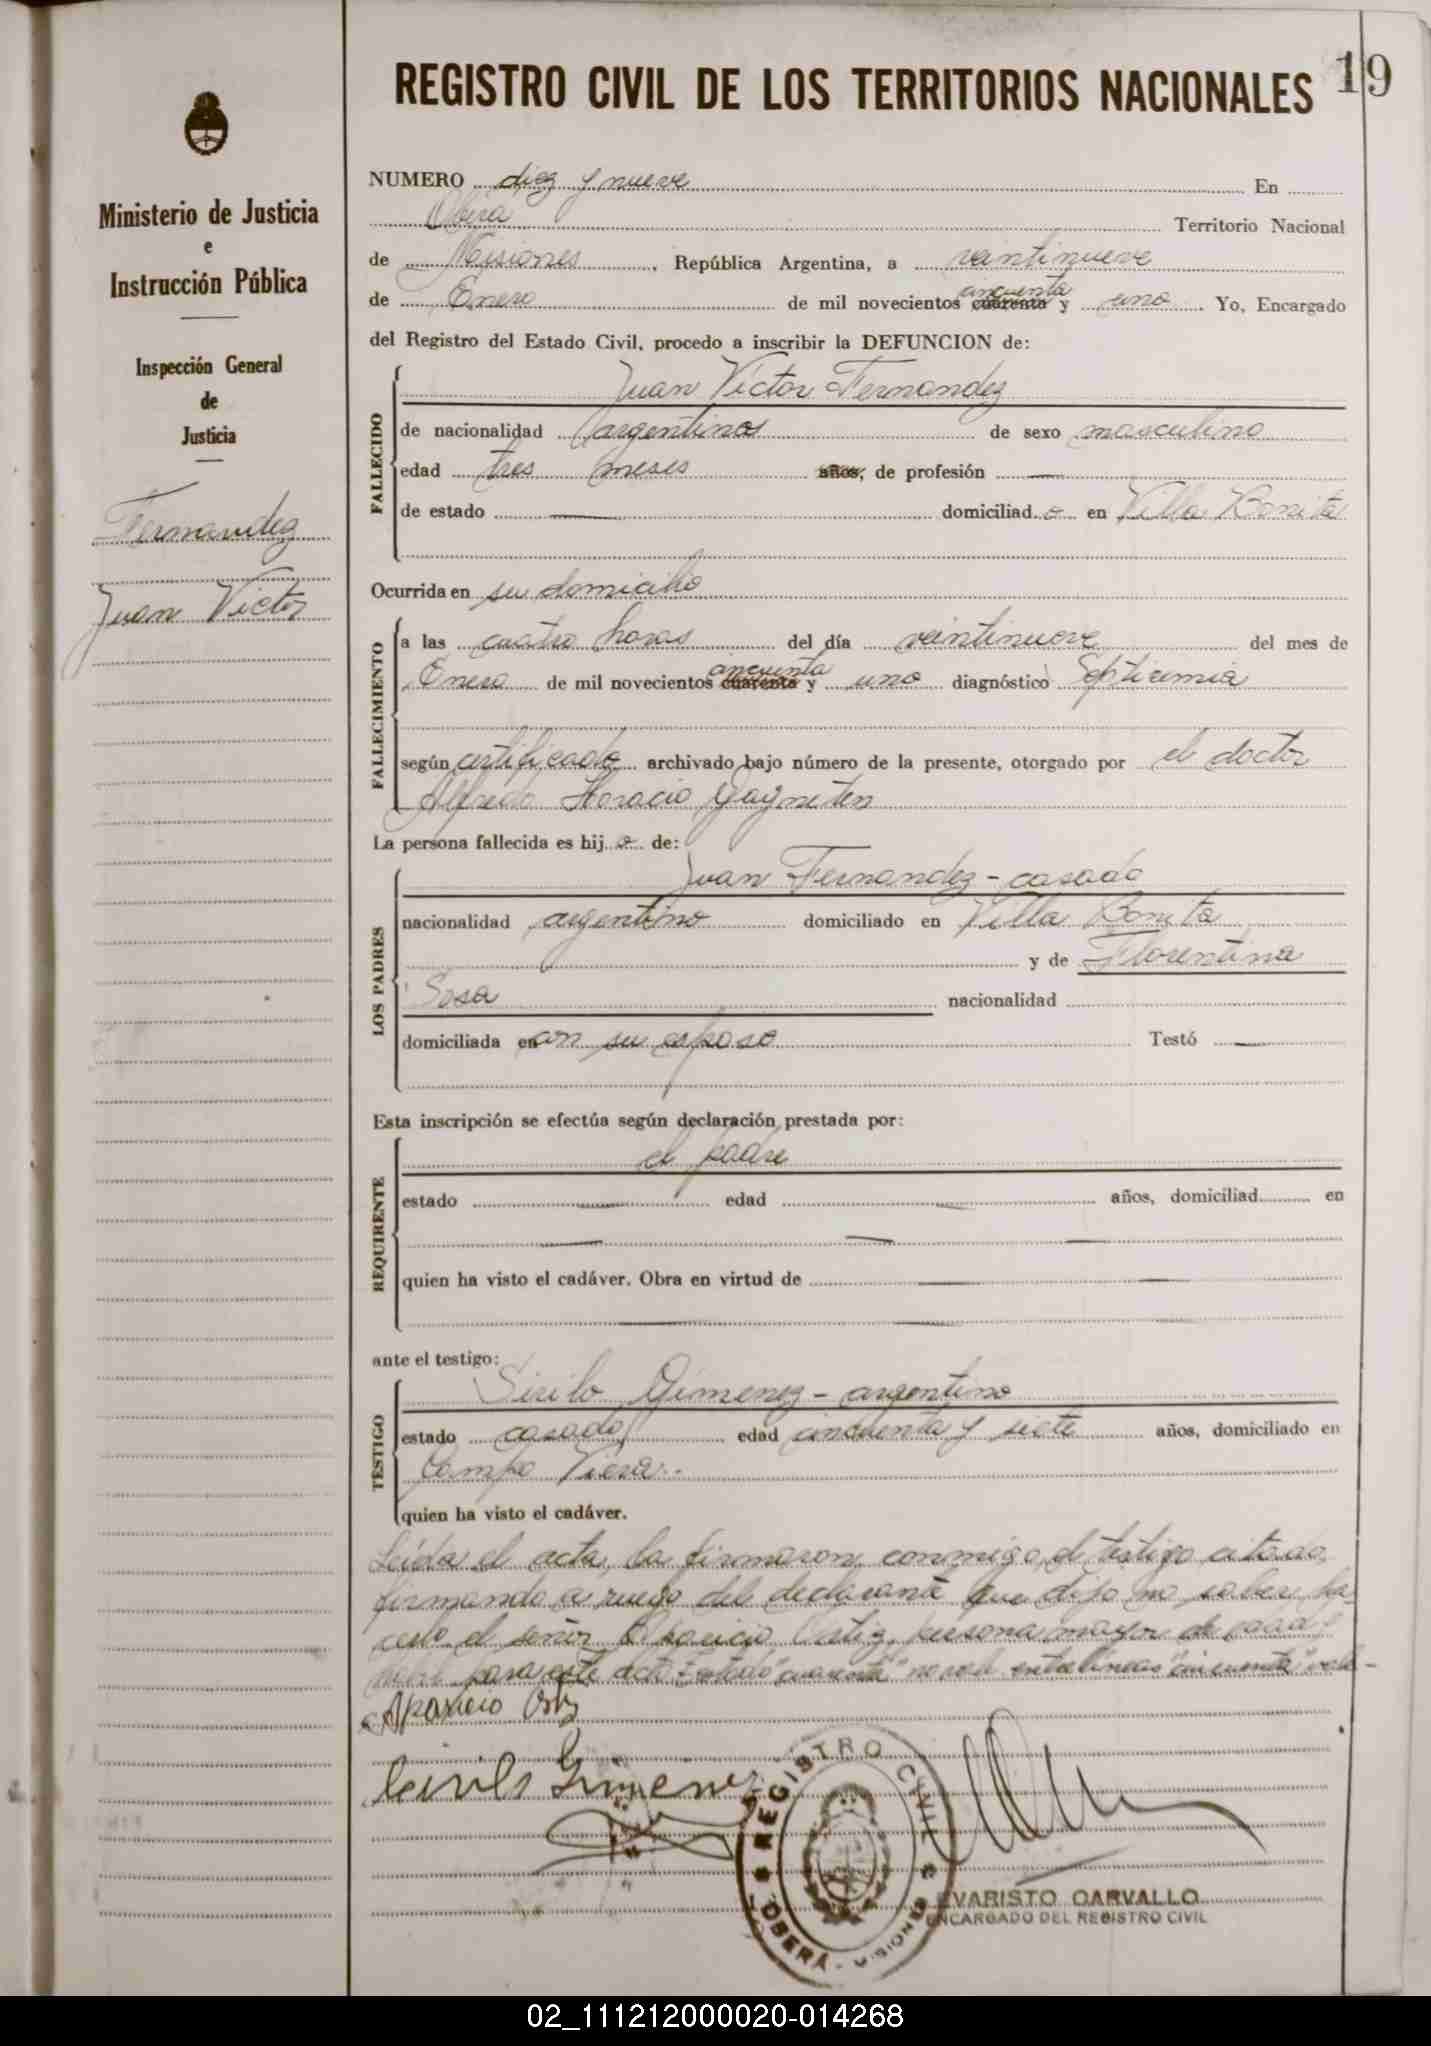 19
REGISTRO CIVIL DE LOS TERRITORIOS NACIONALES
Ministerio de Justicia
e
Instrucción Pública
Inspección General
de
Justicia
Fernandez
Juan Victor
NUMERO diez y nueve En
Oberá Territorio Nacional
de Misiones, República Argentina, a veintinueve
de Enero de mil novecientos cincuenta cuarenta y uno. Yo, Encargado
del Registro del Estado Civil, procedo a inscribir la DEFUNCION de:
FALLECIDO
Juan Victor Fernandez
de nacionalidad argentino de sexo masculino
edad tres meses años, de profesión —
de estado — domiciliad o en Villa Bonita
Ocurrida en su domicilio
FALLECIMIENTO
a las cuatro horas del día veintinueve del mes de
Enero de mil novecientos cincuenta cuarenta y uno diagnóstico Septicemia
según certificado archivado bajo número de la presente, otorgado por el doctor
Alfredo Horacio
La persona fallecida es hij o de:
LOS PADRES
Juan Fernandez - casado
nacionalidad argentino domiciliado en Villa Bonita
y de Florentina
Sosa nacionalidad
domiciliada en con su esposo Testó —
Esta inscripción se efectúa según declaración prestada por:
REQUIRENTE
el padre
estado — edad — años, domiciliad en
— — —
quien ha visto el cadáver. Obra en virtud de — —
— — —
ante el testigo:
TESTIGO
Sirilo Gimenez - argentino
estado casado edad cincuenta y siete años, domiciliado en
Campo Viera.-
quien ha visto el cadáver.
Leída el acta, la firmaron conmigo, el testigo citado,
firmando a ruego del declarante que dijo no saber ha
cerlo el señor Aparicio Ortiz, persona mayor de edad
para este acto. Testado "cuarenta" no vale entrelineas "cincuenta" vale-
Aparicio Ortiz
Cirilo Gimenez
REGISTRO CIVIL
OBERÁ - MISIONES
EVARISTO CARVALLO
ENCARGADO DEL REGISTRO CIVIL
02_111212000020-014268